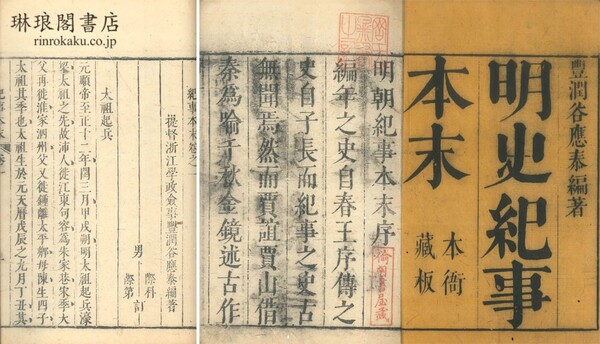 琳琅閣書店
rinrokaku.co.jp
豐潤谷應泰編著
明史紀事
本末
本衙
藏板
明朝紀事本末序
編年之史自春王序傳之
史自子長而紀事之史古
無聞焉然而賈誼賈山借
秦為喻千秋金鏡述古作
紀事本末卷之一
提督浙江學政僉事豐潤谷應泰編著
男 際科
際第 訂
太祖起兵
元順帝至正十二年閏三月甲戌朔明太祖起兵濠
梁太祖之先故沛人徙江東句容為朱家巷宋季大
父再徙淮家泗州父又徙鍾離太平鄉母陳生四子
太祖其季也太祖生於元天曆戊辰之九月丁丑其